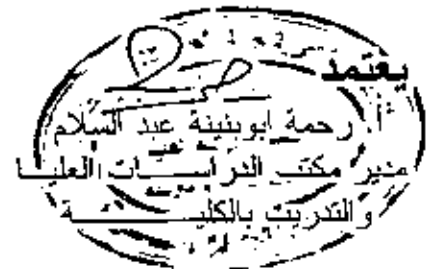 يعتمد
أ. رحمة ابوبنينة عبد السلام
مدير مكتب الدراسات العليا
والتدريب بالكليـــــــــة